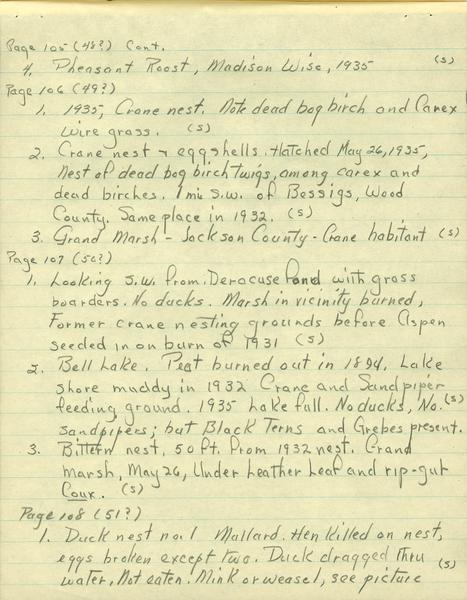 Page 105 (48?) Cont.
4. Pheasant Roost, Madison Wisc, 1935 (s)
Page 106 (49?)
1. 1935, Crane nest. Note dead bog birch and Carex
wire grass. (s)
2. Crane nest & eggshells. Hatched May 26, 1935,
Nest of dead bog birch twigs, among carex and
dead birches. 1 mi. s.w. of Bessigs, Wood
County. Same place in 1932. (s)
3. Grand Marsh - Jackson County - Crane habitant (s)
Page 107 (50?)
1. Looking s.w. from Deracuse Pond with grass
boarders. No ducks. Marsh in vicinity burned,
Former crane nesting grounds before Aspen
seeded in on burn of 1931 (s)
2. Bell Lake. Peat burned out in 1894. Lake
shore muddy in 1932 Crane and Sandpiper
feeding ground. 1935 Lake full. No ducks, No. (s)
sandpipers; but Black Terns and Grebes present.
3. Bittern nest. 50 ft. from 1932 nest. Grand
Marsh, May 26, Under Leather Leaf and rip-gut
(s)
Page 108 (51?)
1. Duck nest no. 1 Mallard. Hen killed on nest,
eggs broken except two. Duck dragged thru
water, Not eaten. Mink or weasel, see picture (s)